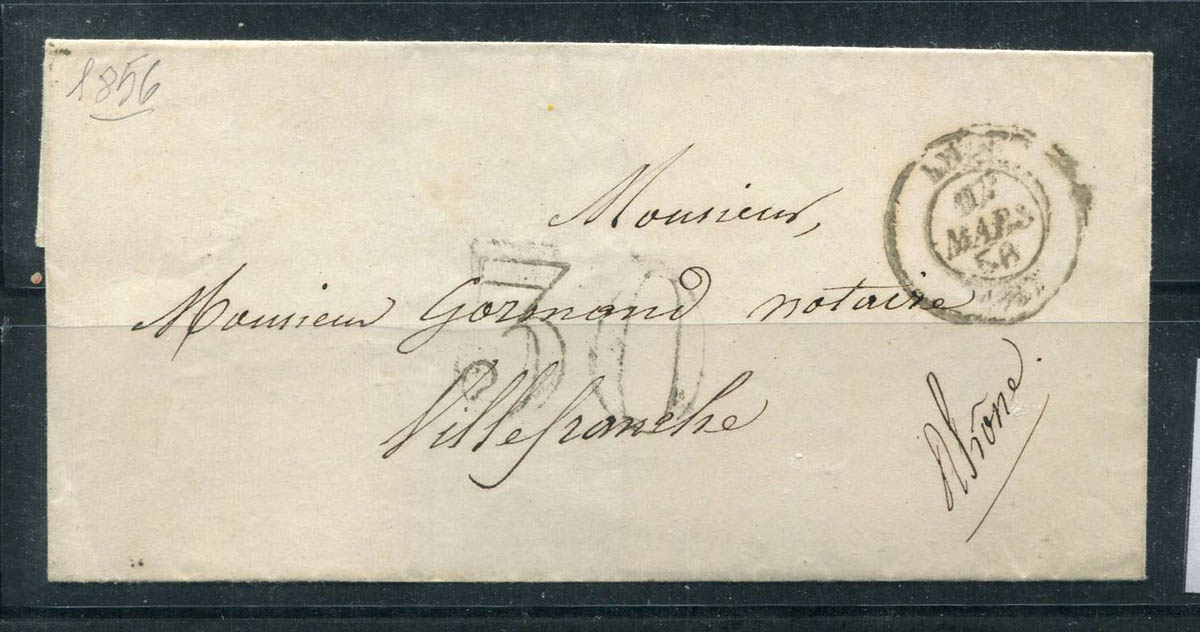 1856
Monsieur,
Monsieur Gormand notaire
Villefranche
Rhône.
30
MARS